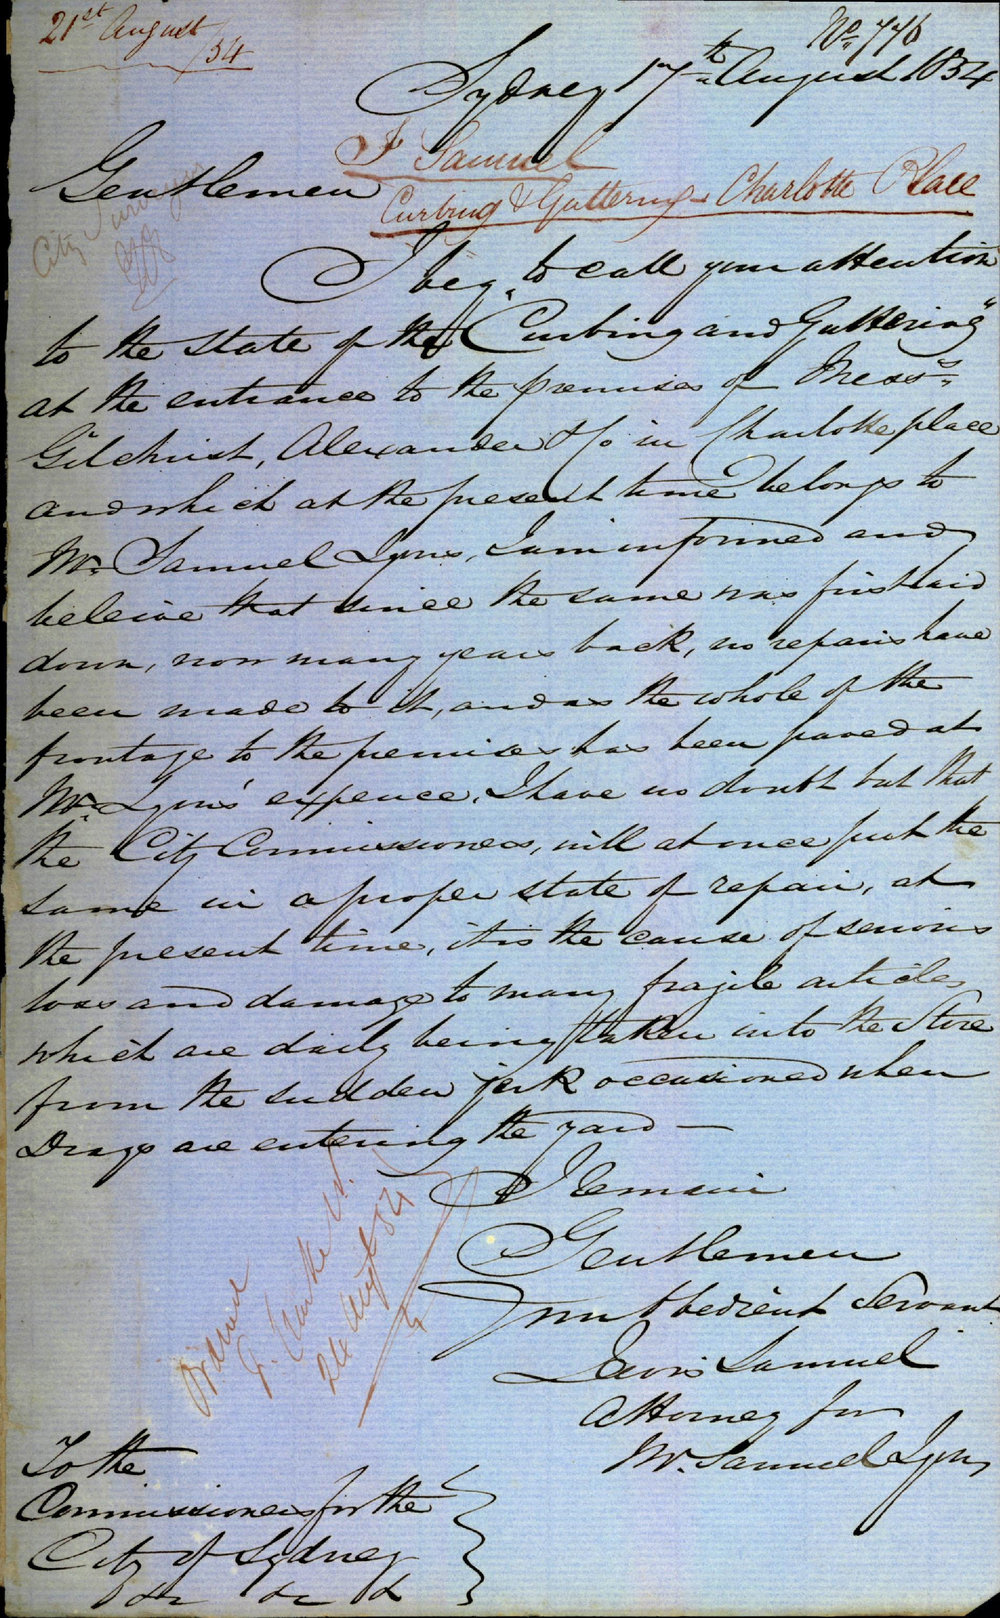 21st August /54
No. 776
Sydney 17th August 1854
S Samuel
Curbing & Guttering - Charlotte Place
Gentlemen
City Surveyor
I beg to call your attention
to the state of the "Curbing and Guttering"
at the entrance to the premises of Messrs
Gilchrist, Alexander & Co in Charlotte place
and which at the present time belongs to
Mr. Samuel Lyons, I am informed and
beleive that since the same was first laid
down, now many years back, no repairs have
been made to it, and as the whole of the
frontage to the premises has been paved at
Mr. Lyons' expence, I have no doubt but that
the City Commissioners, will at once put the
same in a proper state of repair, at
the present time, it is the cause of serious
loss and damage to many fragile articles
which are daily being taken into the Store
from the sudden jerk occasioned when
Drays are entering the yard —
I Remain
Gentlemen
Your Obedient Servant
Lewis Samuel
Attorney for
Mr. Samuel Lyons
24 Augt 54
To the
Commissioners for the
City of Sydney